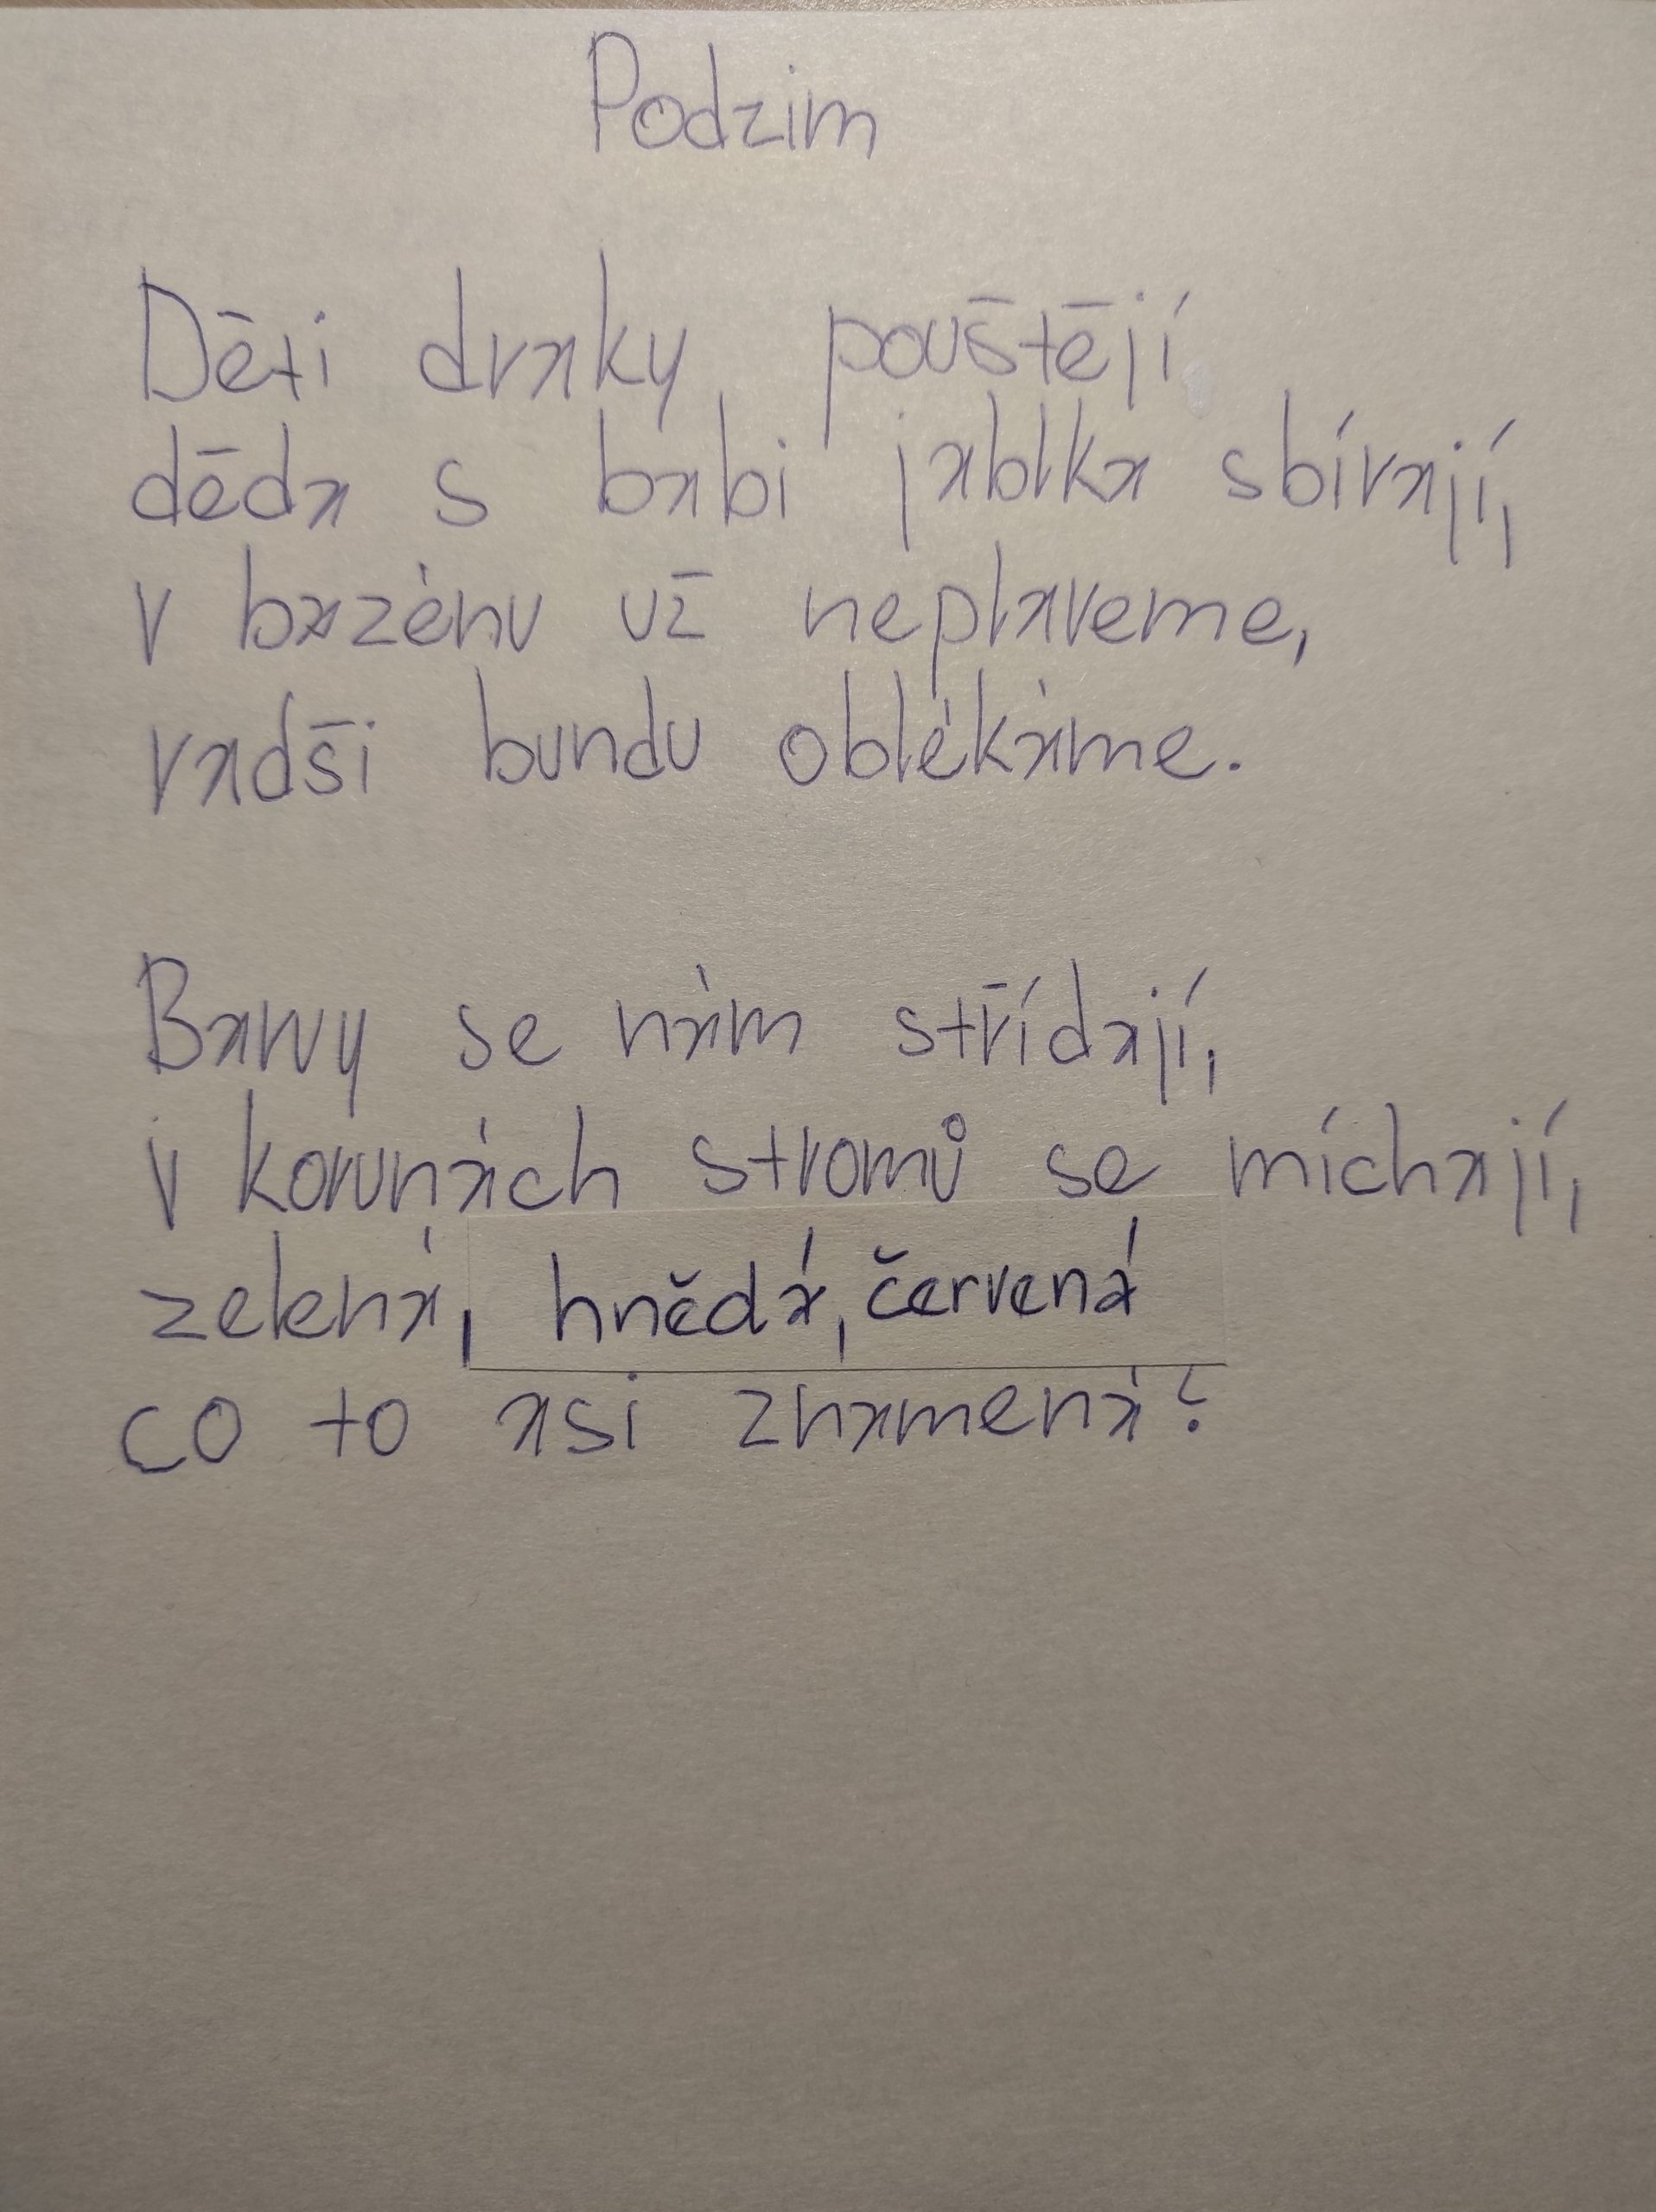 Podzim
Děti draky pouštějí
děda s babi jablka sbírají,
v bazénu už neplaveme,
radši bundu oblékáme.
Barvy se nám střídají,
v korunách stromů se míchají,
zelená, hnědá, červená
co to asi znamená?